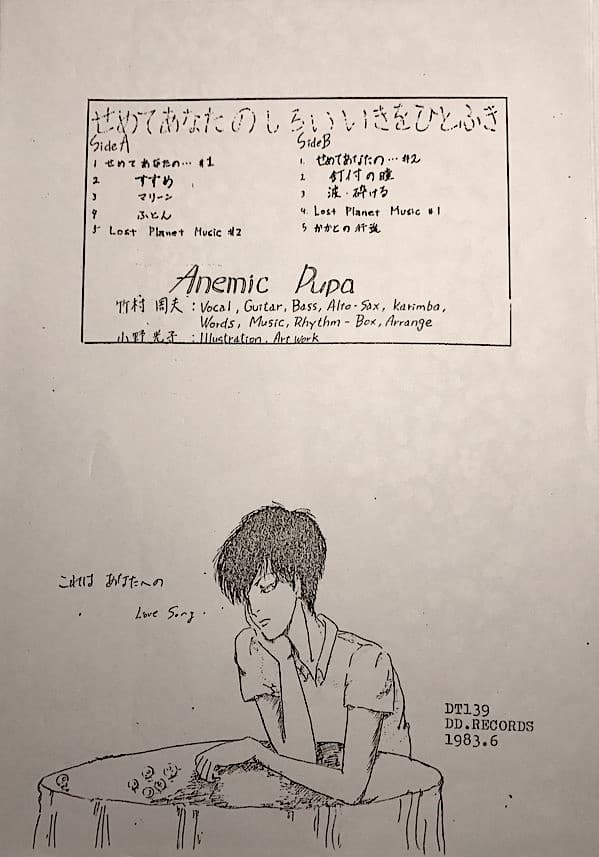 せめてあなたのしろいいきをひとふき
Side A
1 せめてあなたの… #1
2 すずめ
3 マリーン
4 ふとん
5 Lost Planet Music #2
Side B
1. せめてあなたの… #2
2 釘付の瞳
3 波・砕ける
4. Lost Planet Music #1
5 かかとの行進
Anemic Pupa
竹村 周夫 : Vocal, Guitar, Bass, Alto-Sax, Karimba,
Words, Music, Rhythm-Box, Arrange
小野 光子 : Illustration, Art work
これは あなたへの
Love Song.
DT139
DD.RECORDS
1983.6